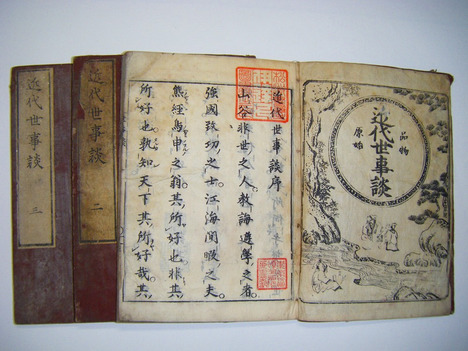 品物
近代世事談
原始
近代世事談序
山谷非世之人教誨遊學之者
強國致功之士江海間暇之夫
熊經鳥申之翁其所好也非其
所好也孰知天下其所好哉其
近代世事談 二
近代世事談 三